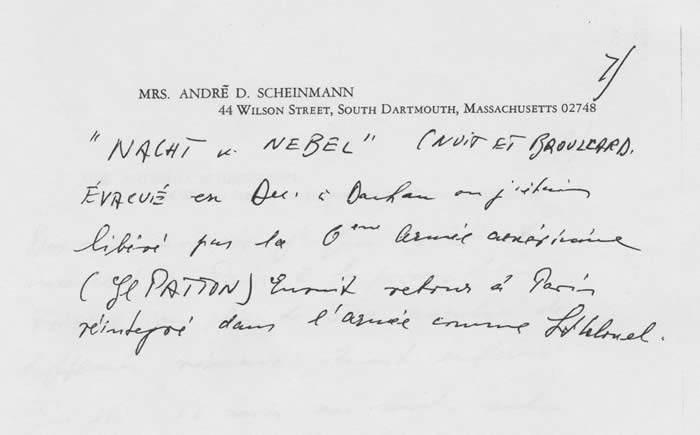 7/
MRS. ANDRÉ D. SCHEINMANN
44 WILSON STREET, SOUTH DARTMOUTH, MASSACHUSETTS 02748
"NACHT u. NEBEL" (NUIT ET BROUILLARD.
ÉVACUÉ en Dec. à Dachau ou j'étais
libéré par la 6ème Armée américaine
(Gl PATTON) Ensuite retour à Paris
réintegré dans l'armée comme Lt Colonel.